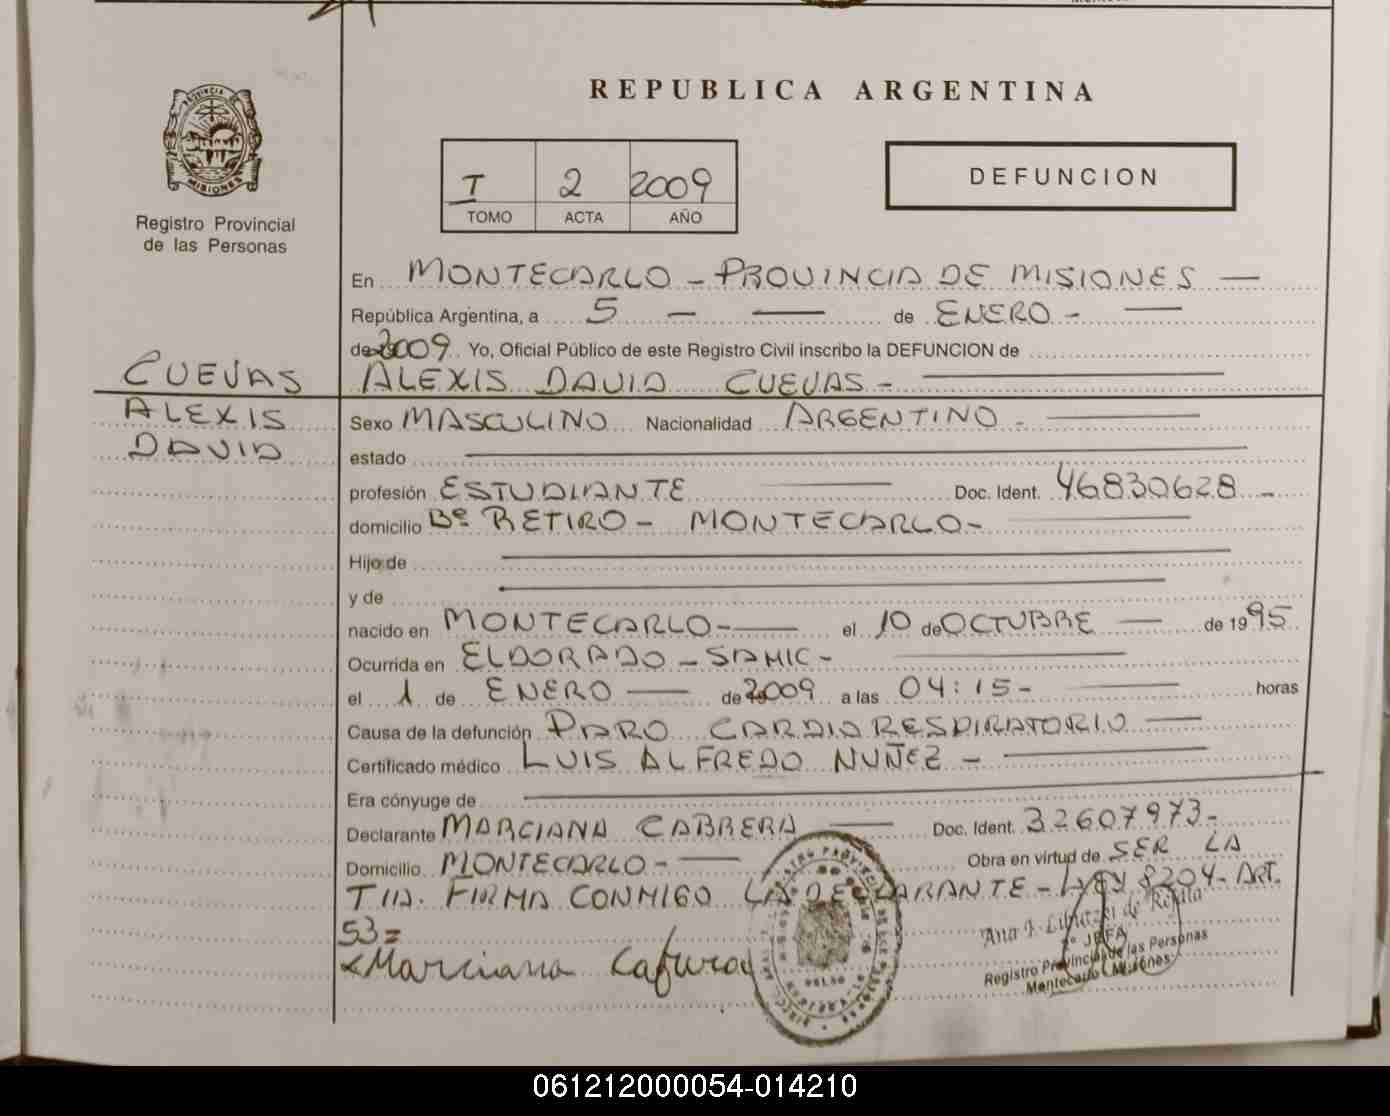 REPUBLICA ARGENTINA
PROVINCIA DE
MISIONES
Registro Provincial
de las Personas
I 2 2009
TOMO ACTA AÑO
DEFUNCION
En MONTECARLO - PROVINCIA DE MISIONES —
República Argentina, a 5 - — de ENERO - —
de 2009 Yo, Oficial Público de este Registro Civil inscribo la DEFUNCION de
CUEVAS
ALEXIS DAVID CUEVAS - —
ALEXIS
DAVID
Sexo MASCULINO Nacionalidad ARGENTINO - —
estado —
profesión ESTUDIANTE — Doc. Ident. 46830628 -
domicilio Bº RETIRO - MONTECARLO - —
Hijo de —
y de —
nacido en MONTECARLO - — el 10 de OCTUBRE — de 1995
Ocurrida en ELDORADO - SAMIC - —
el 1 de ENERO — de 2009 a las 04:15 - — horas
Causa de la defunción PARO CARDIORESPIRATORIO —
Certificado médico LUIS ALFREDO NUÑEZ - —
Era cónyuge de —
Declarante MARCIANA CABRERA — Doc. Ident. 32607973 -
Domicilio MONTECARLO - — Obra en virtud de SER LA
TIA. FIRMA CONMIGO LA DECLARANTE - LEY 8204 - ART.
53 =
Marciana
Ana
JEFA
Registro Provincial de las Personas
Montecarlo Misiones
061212000054-014210